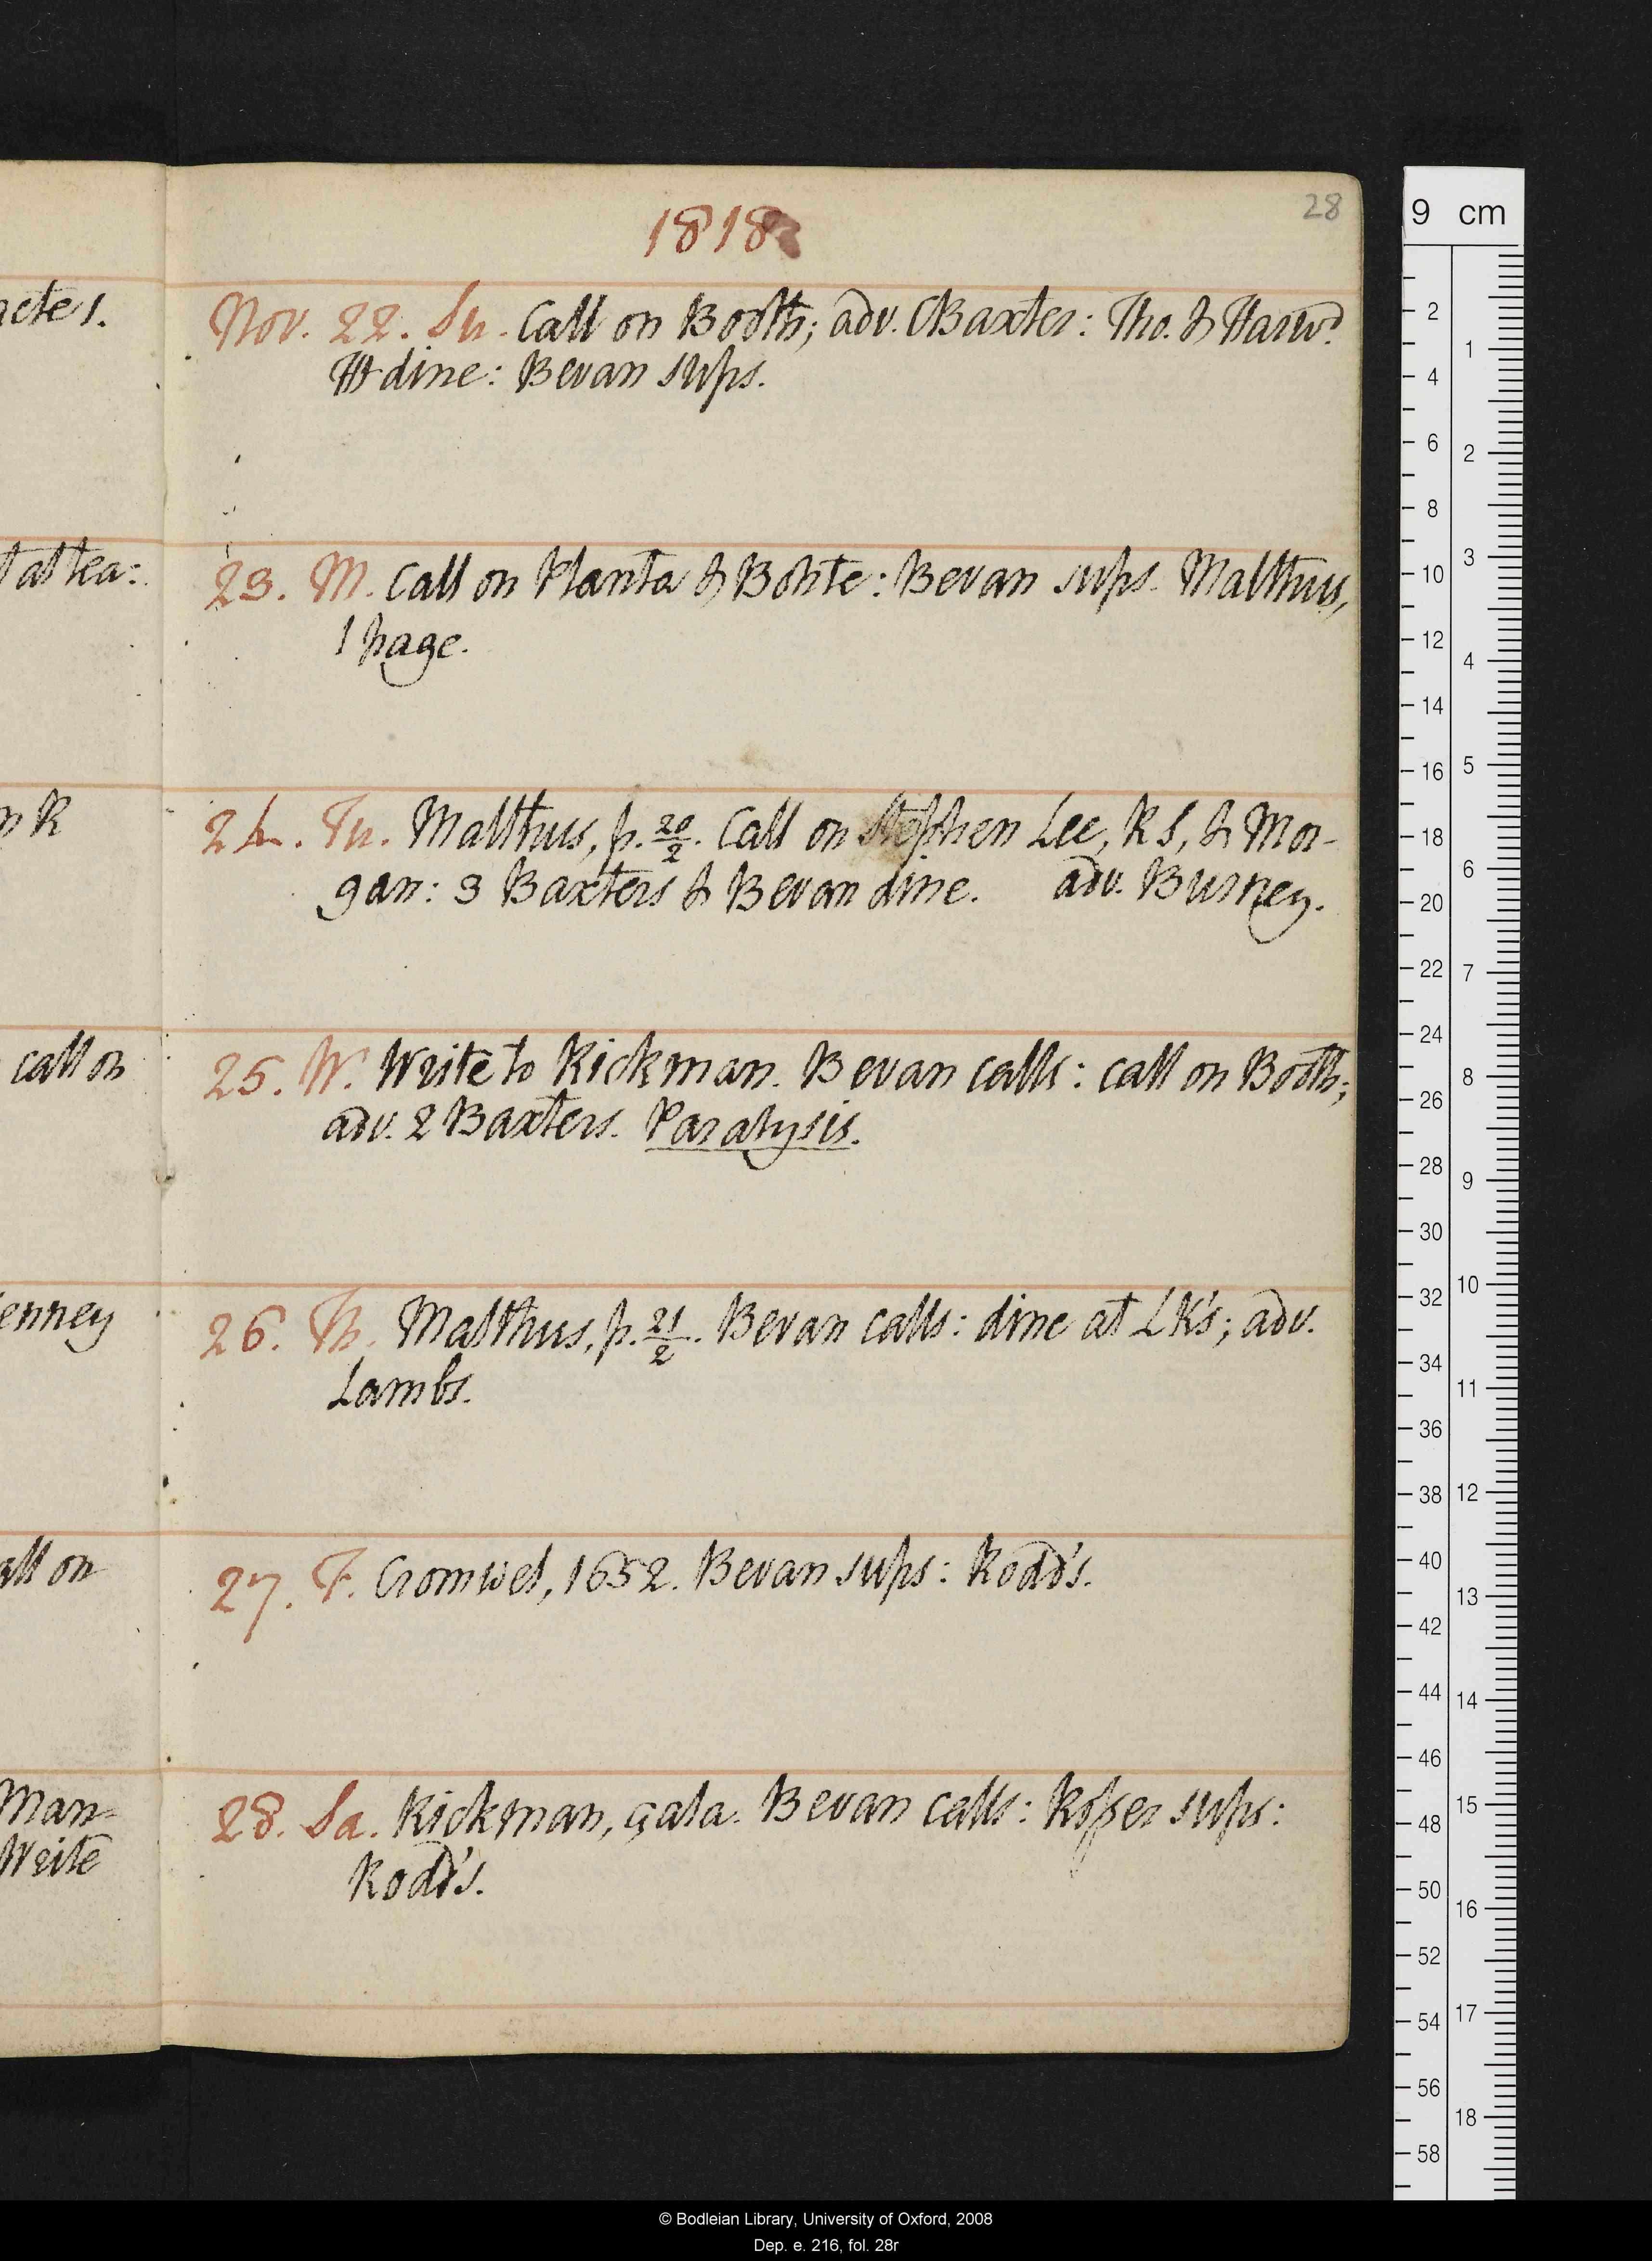 28
1818
acter.
Nov. 22. Su. Call on Booth; adv. CBaxter: Tho. & Harwd
HH dine: Bevan sups.
at tea:
23. M. Call on Planta & Bohte: Bevan sups. Malthus,
1 page.
R
24. Tu. Malthus, p. 20/2. Call on Stephen Lee, RS, & Mor-
gan: 3 Baxters & Bevan dine. adv. Burney.
call on
25. W. Write to Rickman. Bevan calls: call on Booth;
adv. 2 Baxters. Paralysis.
enney
26. Th. Malthus, p. 21/2. Bevan calls: dine at LK's; adv.
Lambs.
all on
27. F. Cromwel, 1652. Bevan sups: Rodd's.
Man-
Write
28. Sa. Rickman, gala. Bevan calls: Rosser sups:
Rodd's.
9 cm
2
4
6
8
10
12
14
16
18
20
22
24
26
28
30
32
34
36
38
40
42
44
46
48
50
52
54
56
58
1
2
3
4
5
6
7
8
9
10
11
12
13
14
15
16
17
18
© Bodleian Library, University of Oxford, 2008
Dep. e. 216, fol. 28r